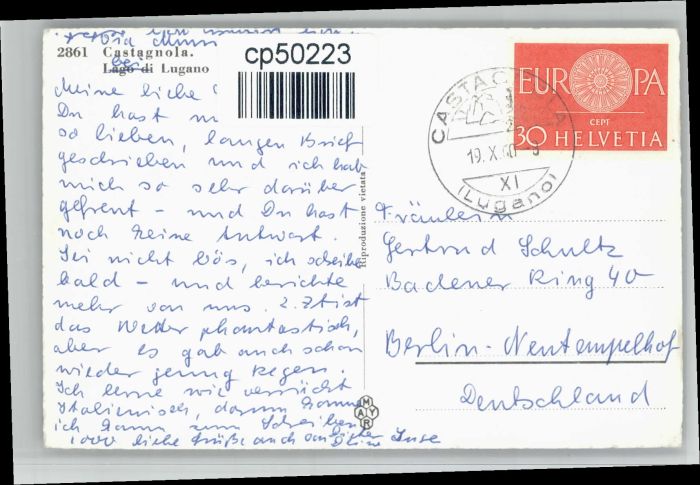 via
2861 Castagnola.
Lago di Lugano
bei
cp50223
Meine liebe
Du hast
so lieben, langen Brief
geschrieben und ich hab
mich so sehr darüber
gefreut – und Du hast
noch keine Antwort.
Sei nicht bös, ich schreibe
bald – und berichte
mehr von uns. Z.Zt ist
das Wetter phantastisch,
aber es gab auch schon
wieder genug Regen.
Ich lerne wie verrückt
Italienisch, darum komme
ich kaum zum Schreiben
1000 liebe Grüße auch von
Deine Inse
Riproduzione vietata
MAYR
EUROPA
CEPT
30 HELVETIA
CASTAGNOLA
19.X.60-9
XI
(Lugano)
Fräulein
Gertrud Schultz
Badener Ring 40
Berlin-Neutempelhof
Deutschland